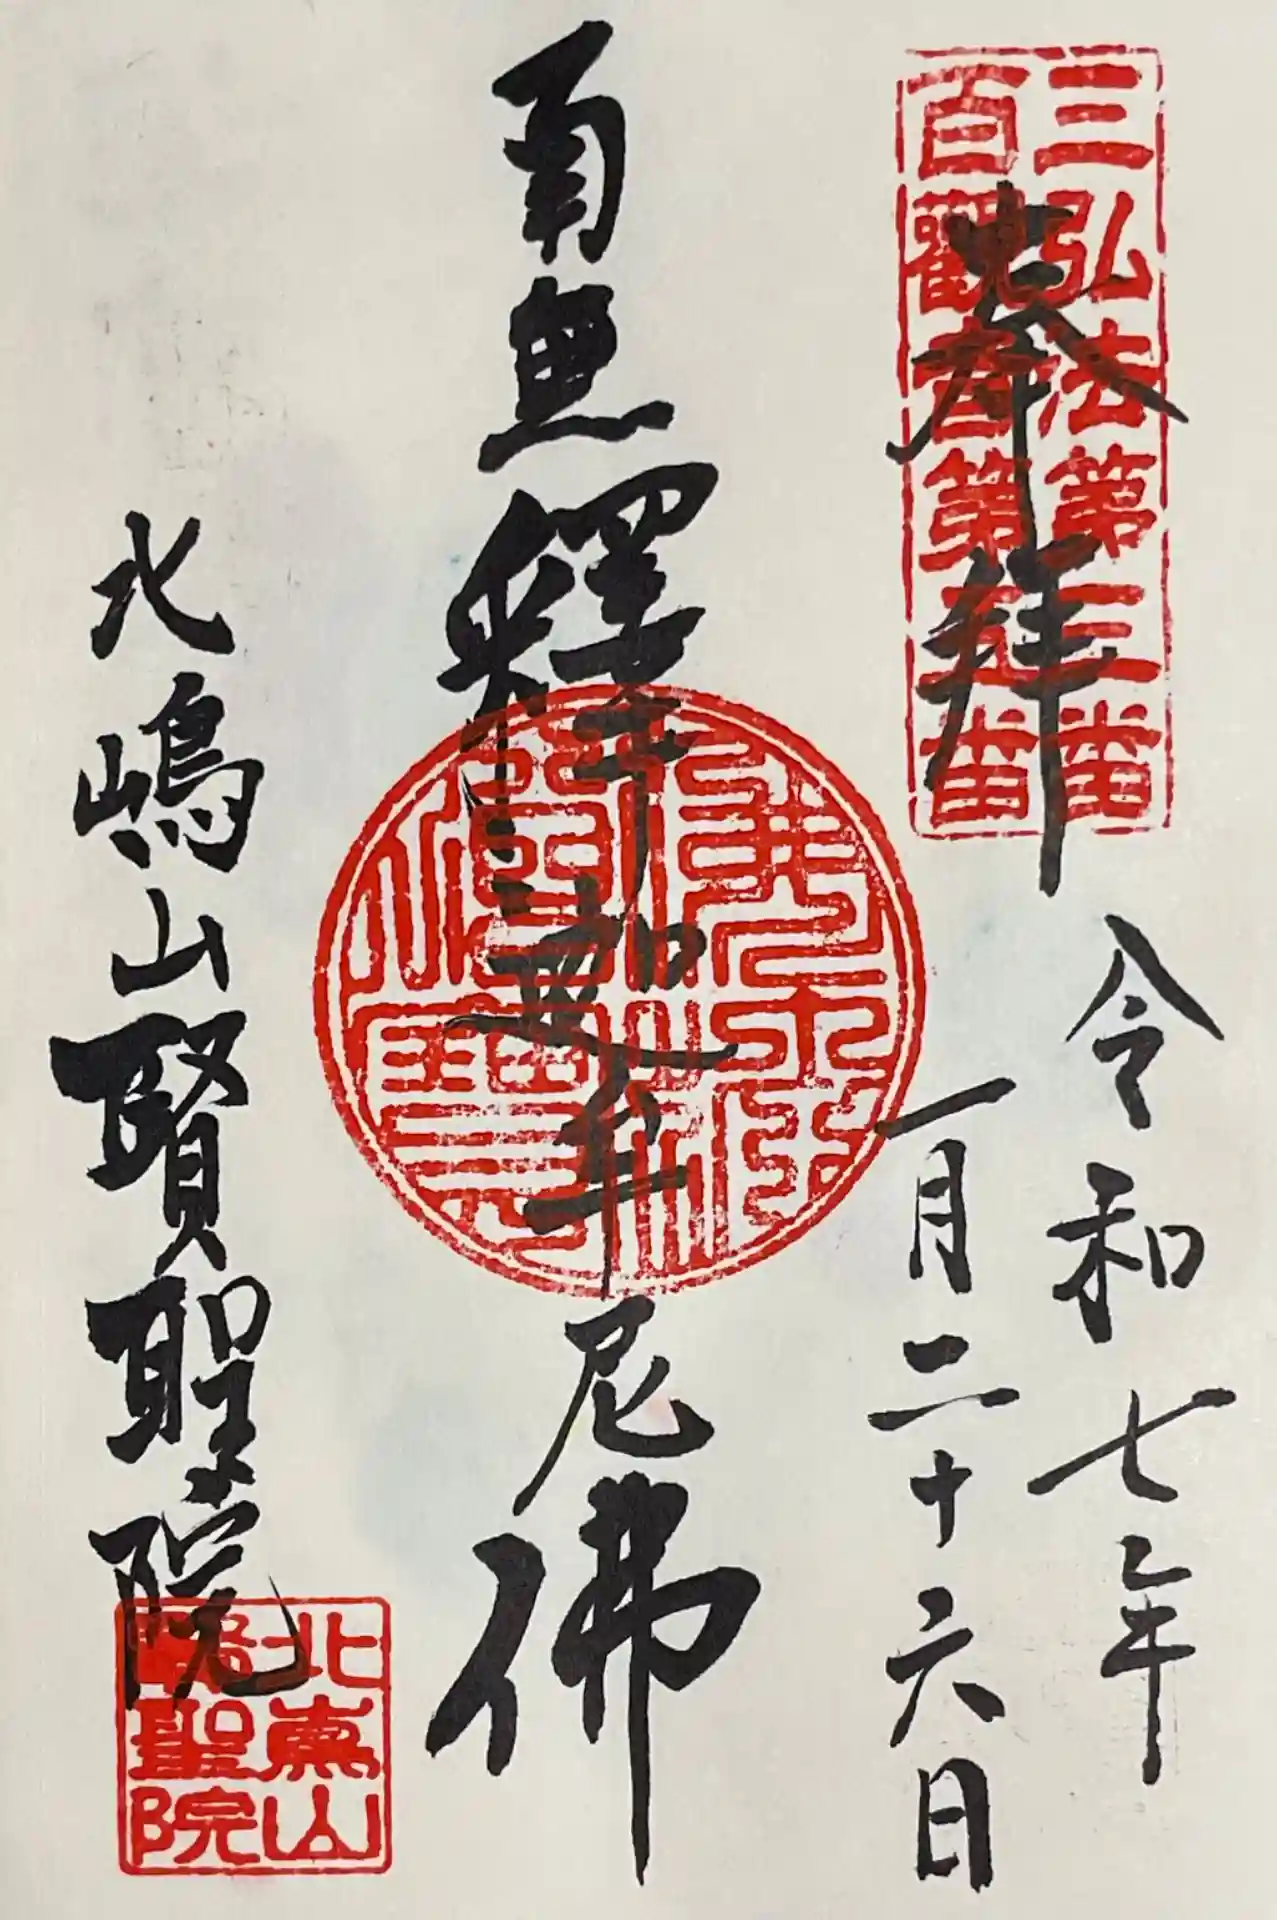 三弘法第三番
百観音第五番
奉拝
令和七年
一月二十六日
南無釋迦牟尼佛
北嶋山賢聖院
北嶌山
賢聖院